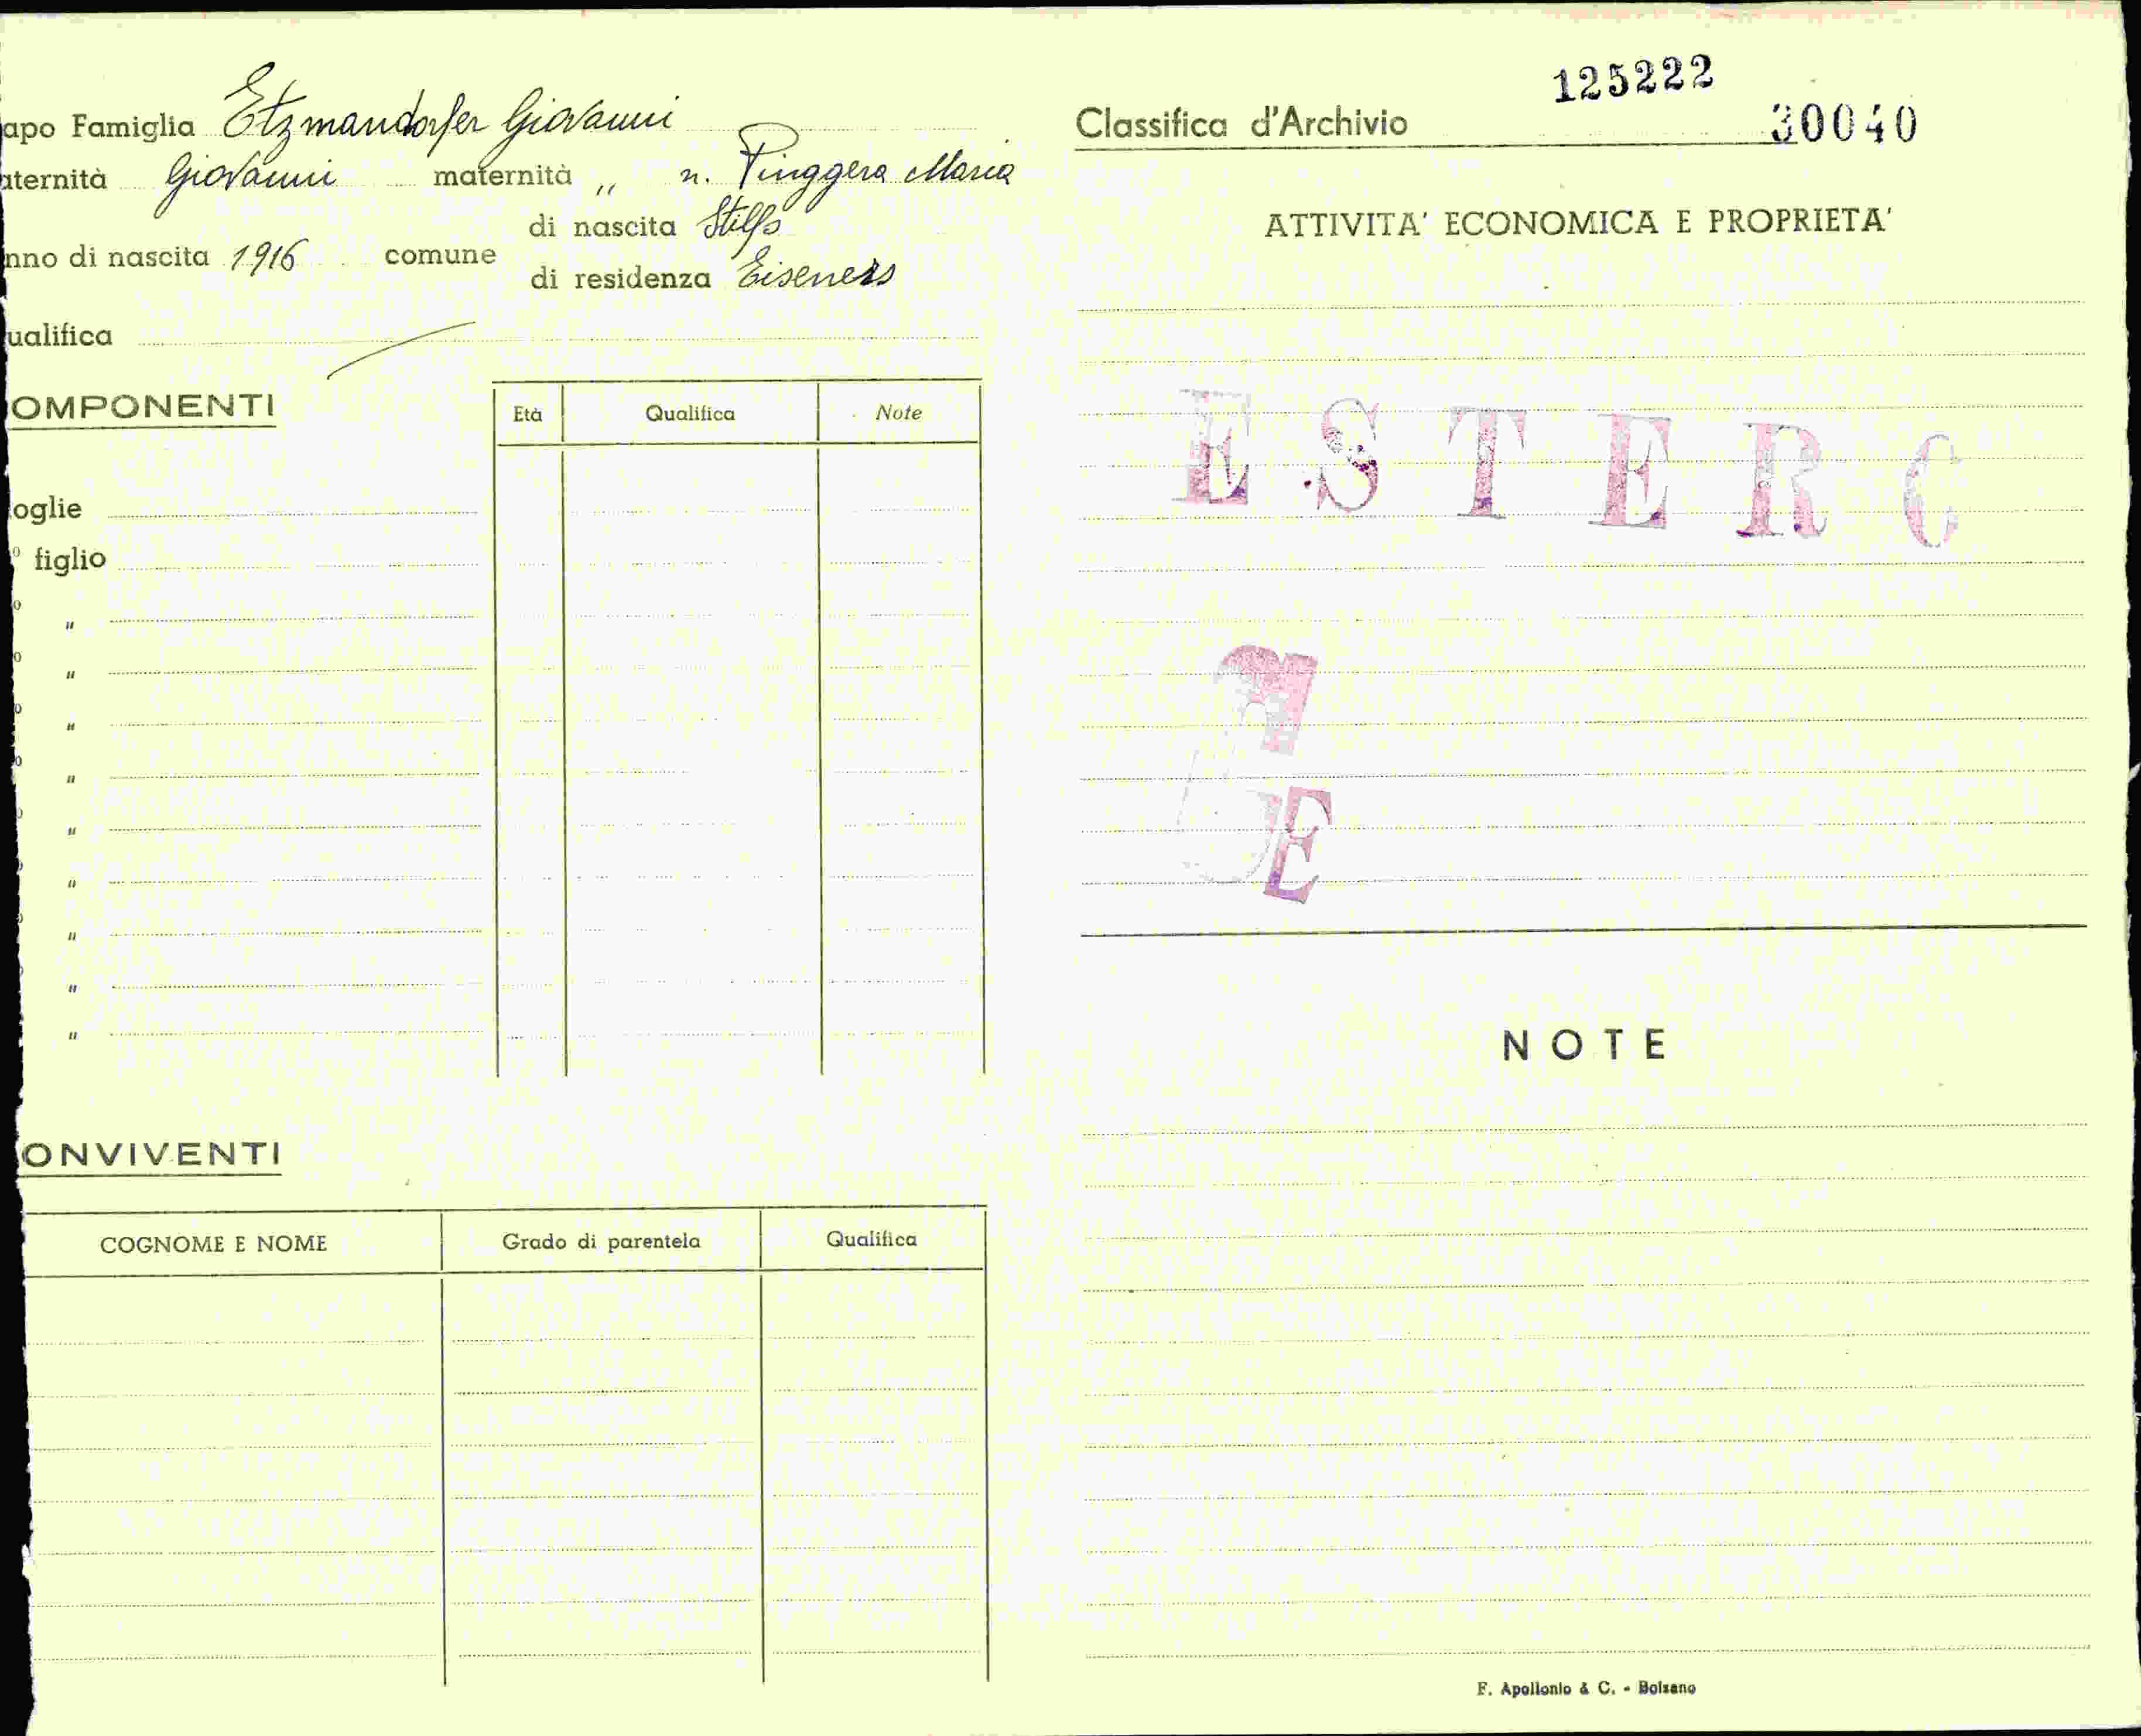 apo Famiglia Etzmandorfer Giovanni
aternità Giovanni maternità „ n. Pinggera Maria
di nascita Stilfs
nno di nascita 1916 comune
di residenza Eiseners
ualifica
OMPONENTI
Età Qualifica Note
oglie
° figlio
o "
o "
o "
o "
"
"
"
"
"
ONVIVENTI
COGNOME E NOME Grado di parentela Qualifica
125222
Classifica d'Archivio 30040
ATTIVITA' ECONOMICA E PROPRIETA'
ESTERO
E
NOTE
F. Apollonio & C. - Bolzano